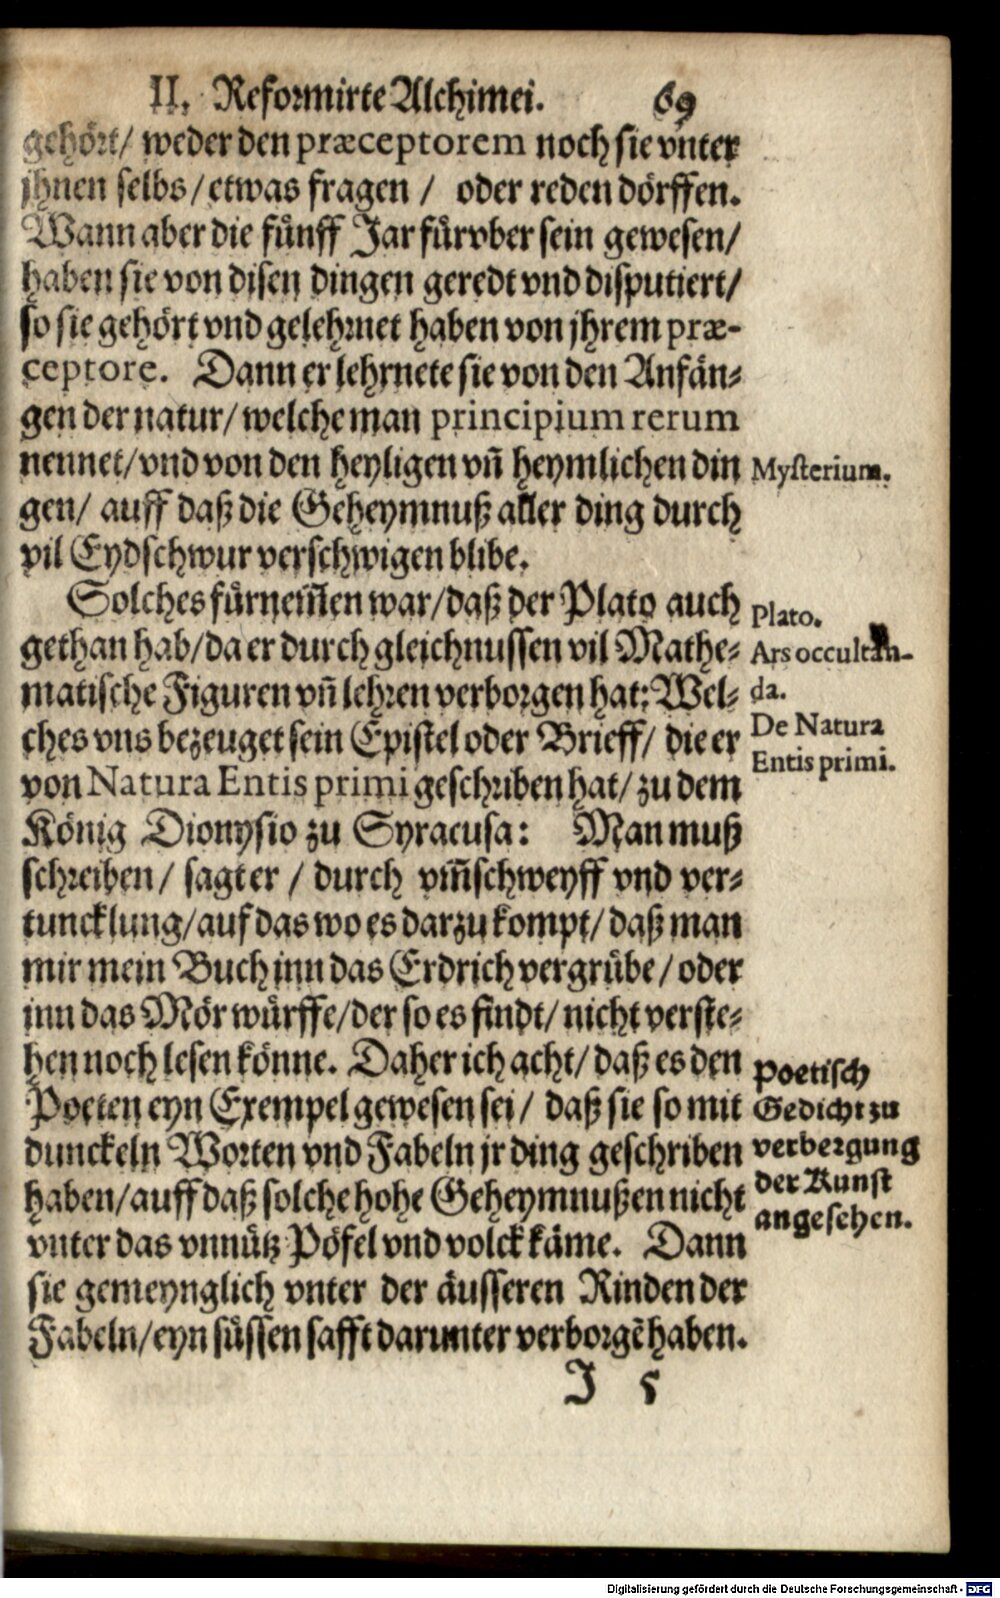 II. Reformirte Alchimei. 69
gehört/ weder den præceptorem noch sie vnter
jhnen selbs/ etwas fragen / oder reden dörffen.
Wann aber die fünff Jar fürvber sein gewesen/
haben sie von disen dingen geredt vnd disputiert/
so sie gehört vnd gelehrnet haben von jhrem præ-
ceptore. Dann er lehrnete sie von den Anfän-
gen der natur/ welche man principium rerum
nennet/ vnd von den heyligen vn̄ heymlichen din
Mysterium.
gen/ auff daß die Geheymnuß aller ding durch
vil Eydschwur verschwigen blibe.
Solches fürnem̄len war/ daß der Plato auch
Plato.
gethan hab/ da er durch gleichnussen vil Mathe-
Ars occultan-
matische Figuren vn̄ lehren verborgen hat: Wel-
da.
ches vns bezeuget sein Epistel oder Brieff/ die er
De Natura
von Natura Entis primi geschriben hat/ zu dem
Entis primi.
König Dionysio zu Syracusa: Man muß
schreiben/ sagt er / durch vm̄schweyff vnd ver-
tuncklung/ auf das wo es darzu kompt/ daß man
mir mein Buch inn das Erdrich vergrübe/ oder
inn das Mör würffe/ der so es findt/ nicht verste-
hen noch lesen könne. Daher ich acht/ daß es den
Poetisch
Poeten eyn Exempel gewesen sei/ daß sie so mit
Gedicht zu
dunckeln Worten vnd Fabeln jr ding geschriben
verbergung
haben/ auff daß solche hohe Geheymnußen nicht
der Kunst
angesehen.
vnter das vnnütz Pöfel vnd volck käme. Dann
sie gemeynglich vnter der äusseren Rinden der
Fabeln/ eyn süssen safft darunter verborgē haben.
J 5
Digitalisierung gefördert durch die Deutsche Forschungsgemeinschaft - DFG